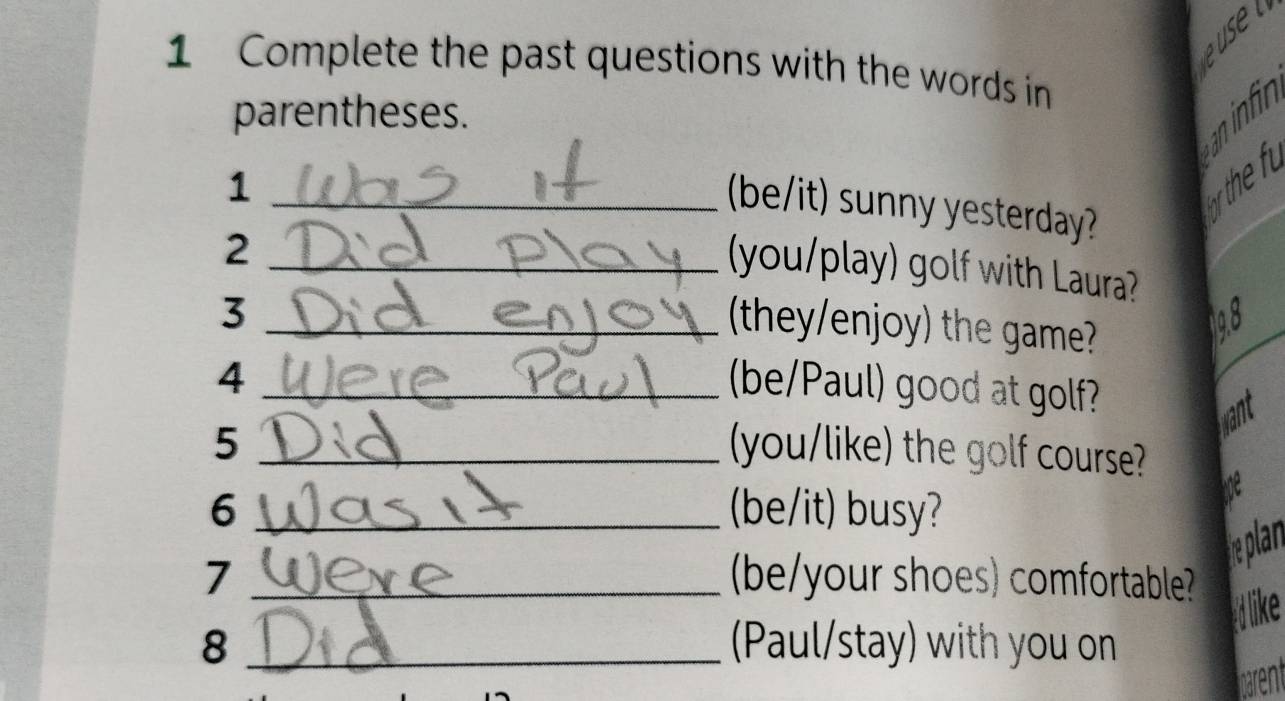 1 Complete the past questions with the words in
parentheses.
1 Was it (be/it) sunny yesterday?
2 Did play (you/play) golf with Laura?
3 Did enjoy (they/enjoy) the game?
4 Were Paul (be/Paul) good at golf?
5 Did (you/like) the golf course?
6 Was it (be/it) busy?
7 Were (be/your shoes) comfortable?
8 Did (Paul/stay) with you on
we use
an infini
for the fu
9.8
want
're plan
'd like
parent